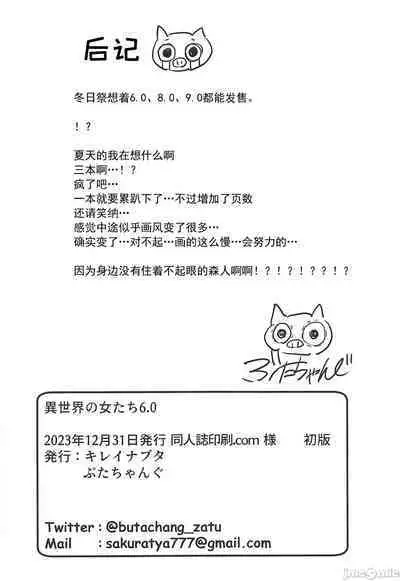 后记
冬日祭想着6.0、8.0、9.0都能发售。
！？
夏天的我在想什么啊
三本啊…！？
疯了吧…
一本就要累趴下了…不过增加了页数
还请笑纳…
感觉中途似乎画风变了很多…
确实变了…对不起…画的这么慢…会努力的…
因为身边没有住着不起眼的森人啊啊！？！？！？？！？
ぶたちゃんぐ
異世界の女たち6.0
2023年12月31日発行 同人誌印刷.com 様 初版
発行：キレイナブタ
ぶたちゃんぐ
Twitter : @butachang_zatu
Mail : sakuratya777@gmail.com